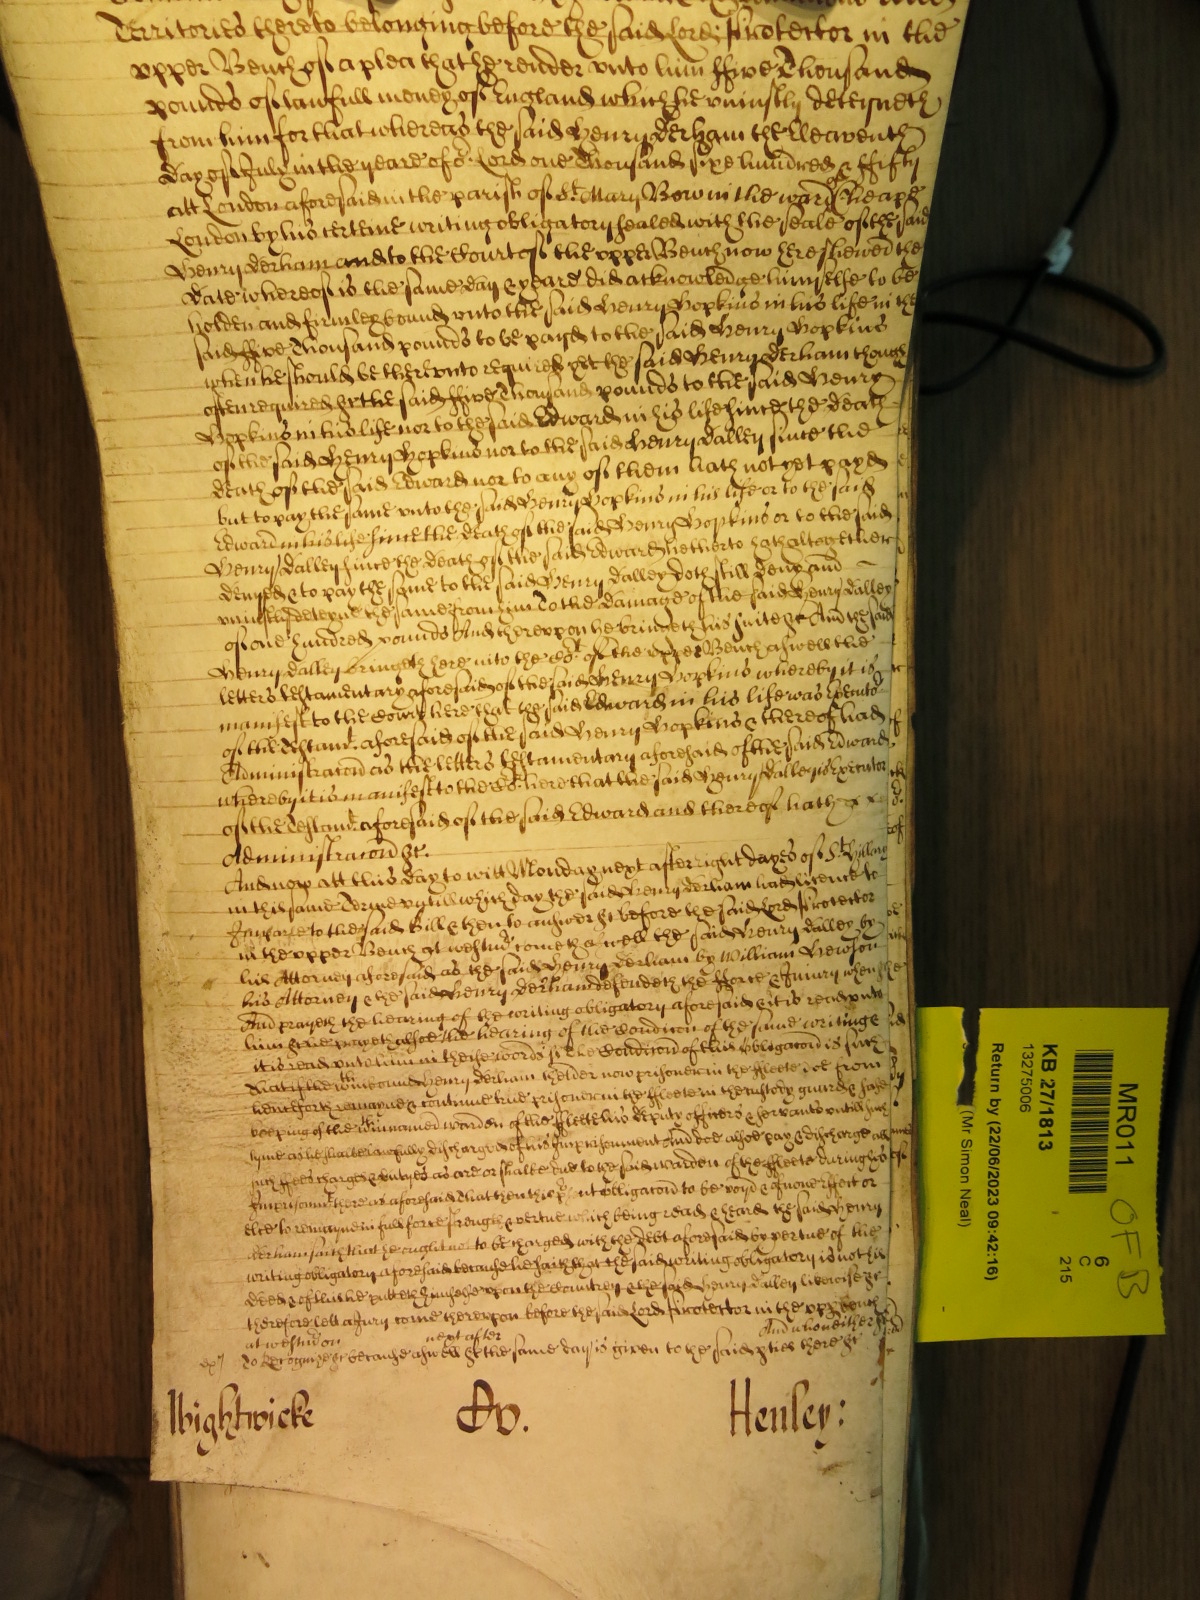 Territories thereto belonging before the said Lord Protector in the
vpper Bench of a plea that he render vnto him ffive Thousand
pounds of lawfull money of England which he vniustly deteyneth
from him for that whereas the said Henry Derham the Eleaventh
day of July in the yeare of or Lord one Thousand sixe hundred & ffifty
att London aforesaid in the parish of St. Mary Bow in the ward of Cheape
London by his certeine writing obligatory sealed with the seale of the said
Henry Derham and to the Court of the vpper Bench now here shewed the
date whereof is the same day & yeare did acknowledge himselfe to be
holden and firmley bound vnto the said Henry Hopkins in his life in the
said ffive Thousand pounds to be payd to the said Henry Hopkins
when he should be therevnto required yet the said Henry Derham though
often required &c the said ffive Thousand pounds to the said Henry
Hopkins in his life nor to the said Edward in his life since the death
of the said Henry Hopkins nor to the said Henry Dalley since the
death of the said Edward nor to any of them hath not yet payd
but to pay the same vnto the said Henry Hopkins in his life or to the said
Edward in his life since the death of the said Henry Hopkins or to the said
Henry Dalley since the death of the said Edward hetherto hath altogether
denyed & to pay the same to the said Henry Dalley doth still deny and
vniustly deteyne the same from him To the damage of the said Henry Dalley
of one hundred pounds And therevpon he bringeth his suite &c And the said
Henry Dalley bringeth here into the Cort of the vpper Bench aswell the
letters testamentary aforesaid of the said Henry Hopkins whereby it is
manifest to the Court here that the said Edward in his life was Executor
of the Testamt. aforesaid of the said Henry Hopkins & thereof had
Administracon as the letters testamentary aforesaid of the said Edward
whereby it is manifest to the Cort here that the said Henry Dalley is Executor
of the Testamt. aforesaid of the said Edward and thereof hath
Administracon &c.
And now att this day to witt Monday next after eight dayes of St. Hillary
in this same Terme vntill which day the said Henry Derham had licence to
Imparle to the said Bill & then to answer &c before the said Lord Protector
in the vpper Bench at westmr. cometh aswell the said Henry Dalley by
his Attorney aforesaid as the said Henry Derham by William Hewson
his Attorney & the said Henry Derham defendeth the fforce & Iniury when &c
And prayeth the hearing of the writing obligatory aforesaid & it is read vnto
him &c he prayeth alsoe the hearing of the Condicon of the same writinge &
it is read vnto him in these words ss The Condicon of this obligacon is such
That if the within bound Henry Derham thelder now prisoner in the ffleete doe from
henceforth remayne & continue true prisoner in the ffleete in the custody guard & safe
keeping of the within named warden of the ffleete his deputy officers & servants vntill such
tyme as he shalbe lawfully discharged of his Imprisonment And doe alsoe pay & discharge all
such ffees charges & dutyes as are or shalbe due to the said warden of the ffleete during his
Imprisonmt. there as aforesaid That then this pnt obligacon to be voyd & of none effect or
else to remayne in full force strength & vertue which being read & heard the said Henry
Derham saith that he ought not to be charged with the Debt aforesaid by vertue of the
writing obligatory aforesaid because he saith that the said writing obligatory is not his
deed & of this he putteth himselfe vpon the Country & the said Henry Dalley likewise &c
therefore lett a Jury come therevpon before the said Lord Protector in the vpp bench
at westmr on next after And who neither &c
To Recognize &c because aswell &c the same day is given to the said pties there &c
Wightwicke Ov. Henley:
MR011
6
C
215
KB 27/1813
13275006
Return by (22/06/2023 09:42:16)
(Mr Simon Neal)
OF B